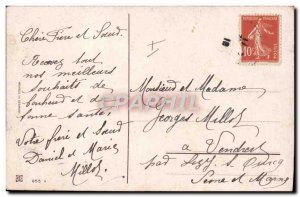 Chère Frère et Sœur.
Recevez tout
nos meilleurs
souhaits de
bonheur et de
bonne santé,
Votre frère et Sœur
Daniel et Marie
Millot
Monsieur et Madame
Georges Millot
à Vendrest
par Lizy s Ourcq
Seine et Marne
REPUBLIQUE FRANÇAISE
10
POSTES